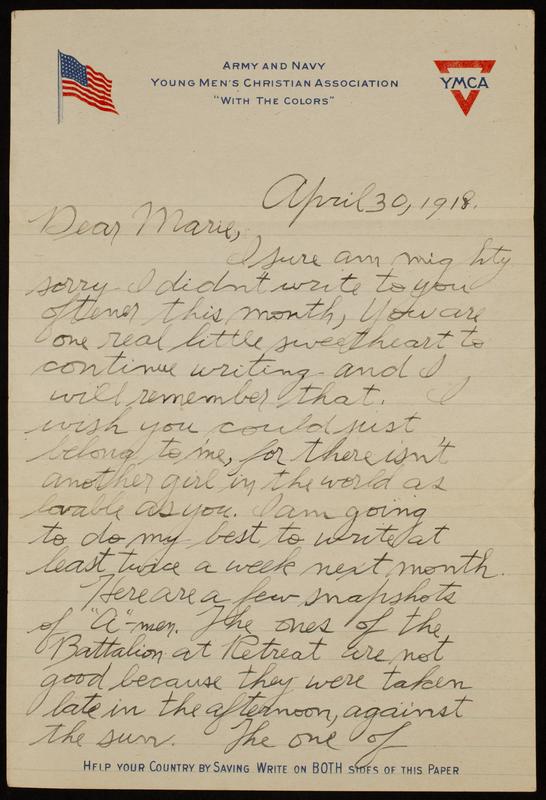 ARMY AND NAVY
YOUNG MEN'S CHRISTIAN ASSOCIATION
"WITH THE COLORS"
YMCA
April 30, 1918.
Dear Marie,
I sure am mighty
sorry I didn't write to you
oftener this month, You are
one real little sweetheart to
continue writing and I
will remember that. I
wish you could just
belong to me, for there isn't
another girl in the world as
lovable as you. I am going
to do my best to write at
least twice a week next month.
Here are a few snapshots
of "A"-men. The ones of the
Battalion at Retreat are not
good because they were taken
late in the afternoon, against
the sun. The one of
HELP YOUR COUNTRY BY SAVING. WRITE ON BOTH SIDES OF THIS PAPER